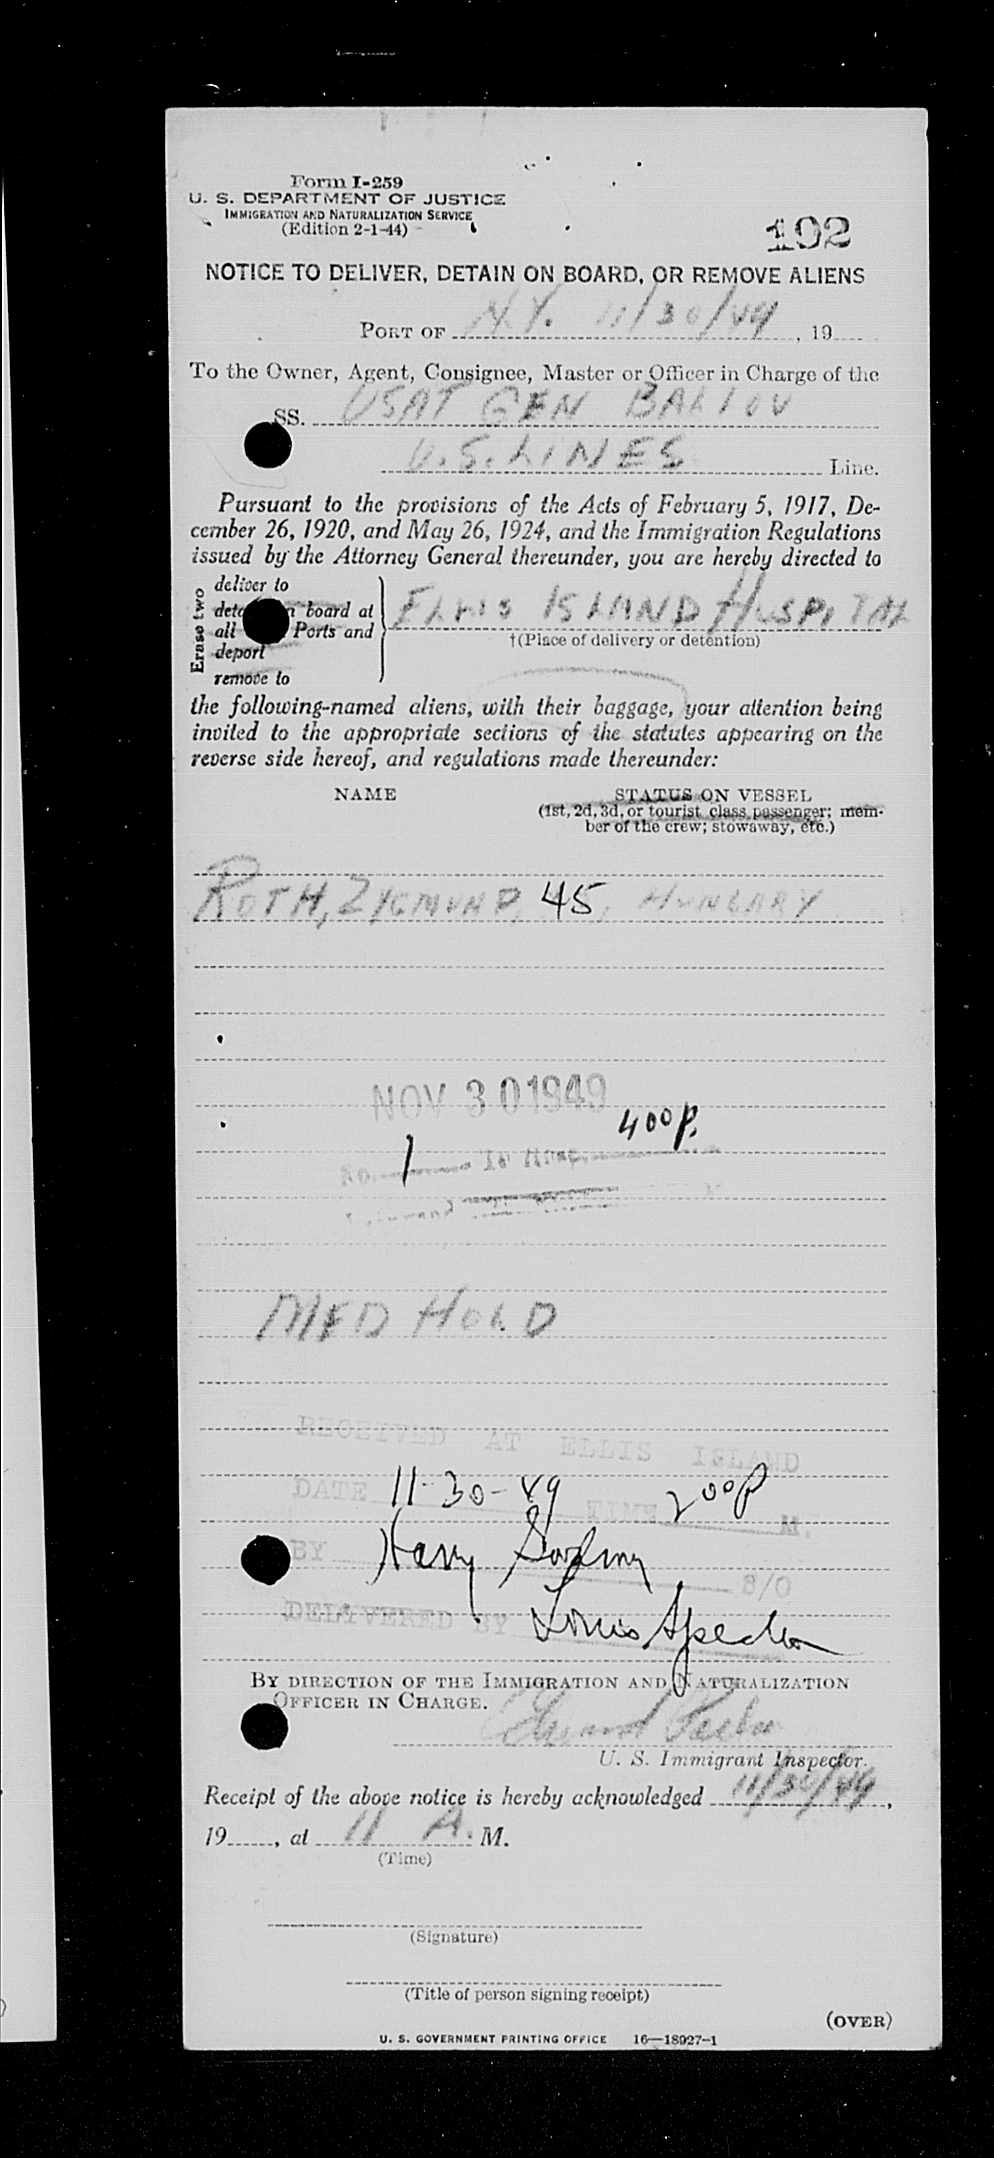 Form I-259
U. S. DEPARTMENT OF JUSTICE
IMMIGRATION AND NATURALIZATION SERVICE
(Edition 2-1-44)
192
NOTICE TO DELIVER, DETAIN ON BOARD, OR REMOVE ALIENS
PORT OF N.Y. 11/30/49, 19
To the Owner, Agent, Consignee, Master or Officer in Charge of the
SS. USAT GEN BALLOU
U.S. LINES Line.
Pursuant to the provisions of the Acts of February 5, 1917, De-
cember 26, 1920, and May 26, 1924, and the Immigration Regulations
issued by the Attorney General thereunder, you are hereby directed to
Erase two
deliver to
board at
all Ports and
deport
remove to
ELLIS ISLAND HOSPITAL
†(Place of delivery or detention)
the following-named aliens, with their baggage, your attention being
invited to the appropriate sections of the statutes appearing on the
reverse side hereof, and regulations made thereunder:
NAME
STATUS ON VESSEL
(1st, 2d, 3d, or tourist class passenger; mem-
ber of the crew; stowaway, etc.)
ROTH, ZYGMUND, 45, HUNGARY
NOV 30 1949
400 P.
No. 1 To Hosp.
MED HOLD
RECEIVED AT ELLIS ISLAND
DATE 11-30-49 TIME 200 P M.
BY Harry S/O
DELIVERED BY Louis Spector
BY DIRECTION OF THE IMMIGRATION AND NATURALIZATION
OFFICER IN CHARGE.
Edward
U. S. Immigrant Inspector.
Receipt of the above notice is hereby acknowledged 11/30/49,
19, at 11 A. M.
(Time)
(Signature)
(Title of person signing receipt)
(OVER)
U. S. GOVERNMENT PRINTING OFFICE 16—18927-1